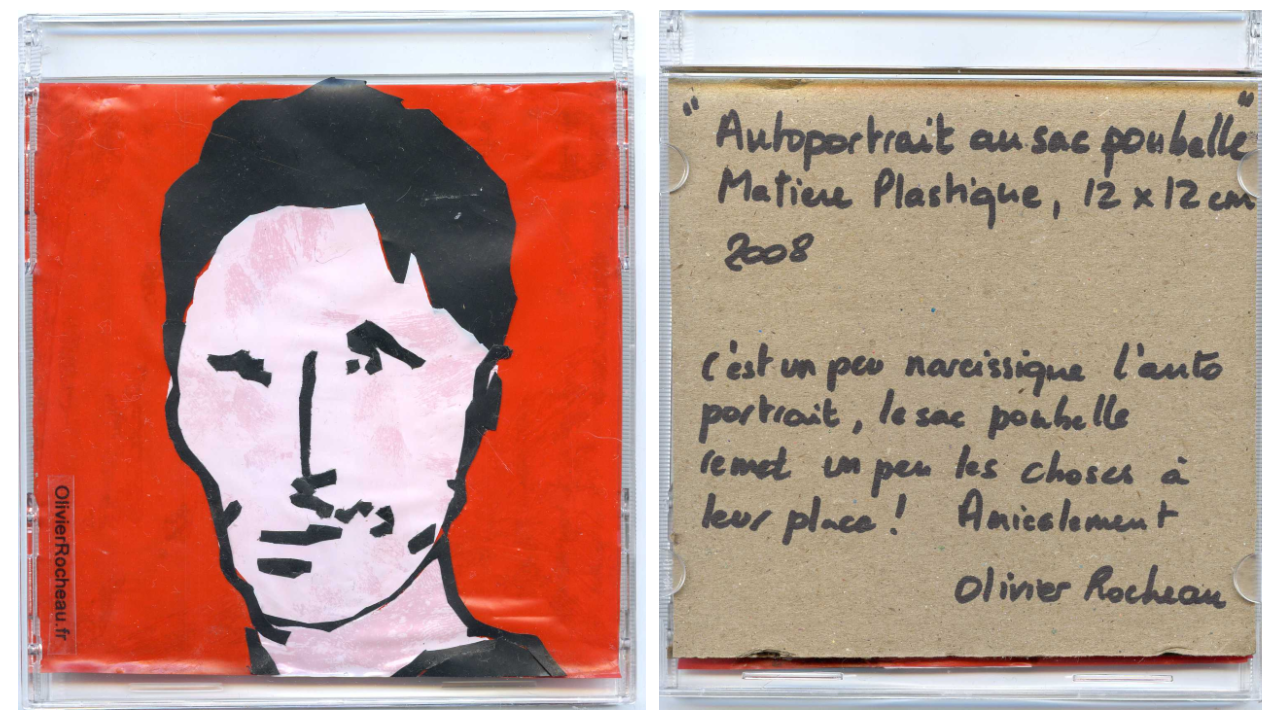 OlivierRocheau.fr
" Autoportrait au sac poubelle "
Matière Plastique, 12 x 12 cm
2008
c'est un peu narcissique l'auto
portrait, le sac poubelle
remet un peu les choses à
leur place ! Amicalement
Olivier Rocheau